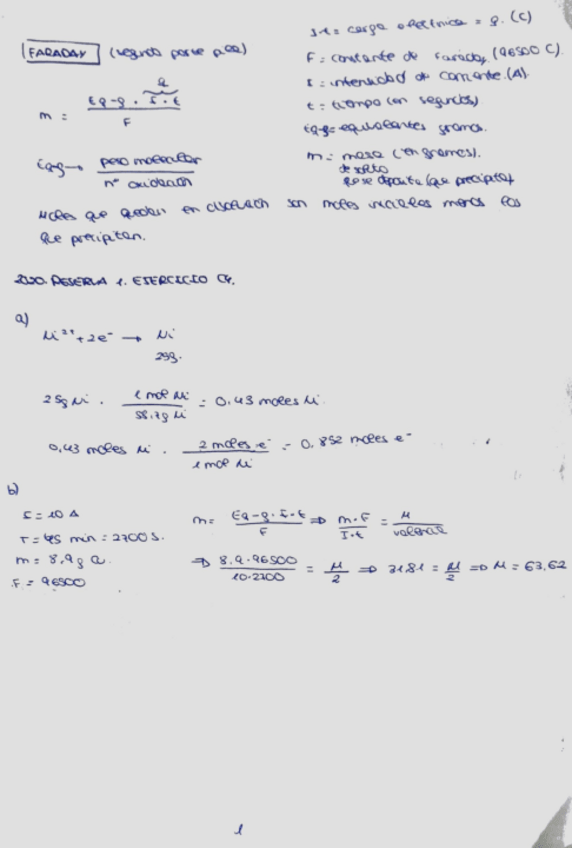 FARADAY (segunda parte p.e.)
I·t = carga eléctrica = q. (C)
F = constante de Faraday (96500 C).
I = intensidad de corriente (A).
t = tiempo (en segundos).
Eq-g = equivalentes gramos.
m = masa (en gramos).
que se deposita (que precipita)
Q
m = Eq-g · I · t / F
Eq-g → peso molecular / nº oxidación
Moles que quedan en disolución son moles iniciales menos los
que precipitan.
2020. RESERVA 1. EJERCICIO C4.
a)
Ni²⁺ + 2e⁻ → Ni
25g.
25g Ni · 1 mol Ni / 58.7g Ni = 0.43 moles Ni
0.43 moles Ni · 2 moles e⁻ / 1 mol Ni = 0.852 moles e⁻
b)
I = 10 A
T = 45 min = 2700 s.
m = 8.9 g
F = 96500
m = Eq-g · I · t / F ⇒ m · F / I · t = M / valencia
⇒ 8.9 · 96500 / 10 · 2700 = M / 2 ⇒ 31.81 = M / 2 ⇒ M = 63.62
1